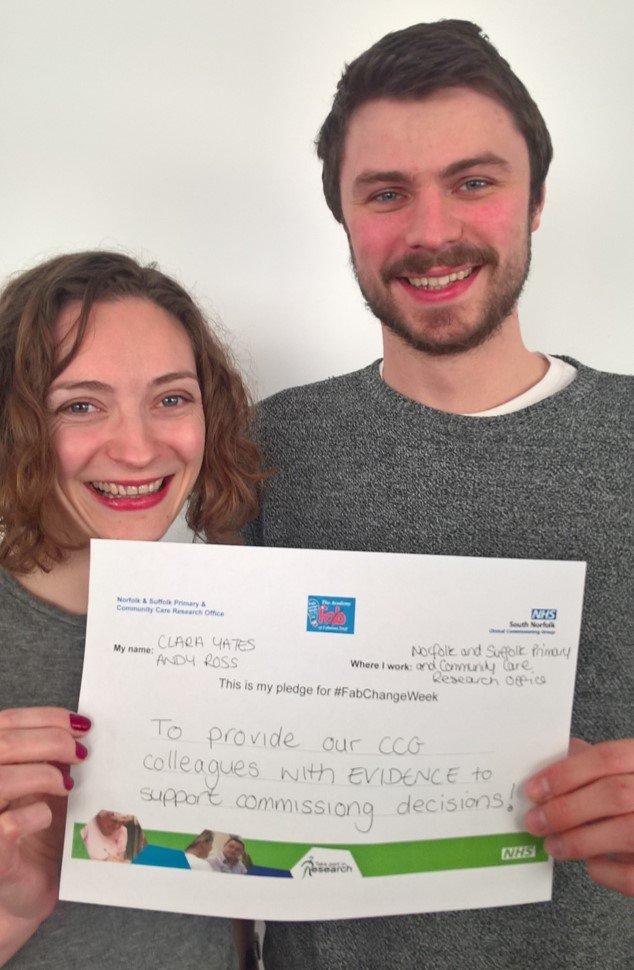 Norfolk & Suffolk Primary &
Community Care Research Office
The Academy
fab
of Fabulous Stuff
NHS
South Norfolk
Clinical Commissioning Group
My name: CLARA YATES
ANDY ROSS
Where I work: Norfolk and Suffolk Primary
and Community Care
Research Office
This is my pledge for #FabChangeWeek
To provide our CCG
colleagues with EVIDENCE to
support commissiong decisions!
Take part in
Research
NHS